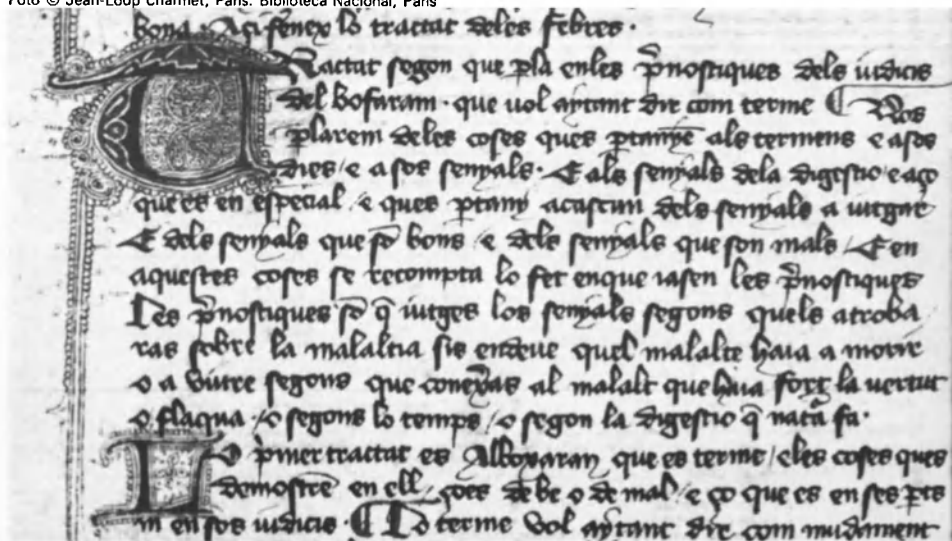 Foto © Jean-Loup Charmet, París. Biblioteca Nacional, París
bona · Açi feneix lo tractat deles febres ·
Tractat segon que pla enles p̄nostiques dels iudicis
del bofaram · que uol aytant dir com terme ¶ Nos
plarem deles coses ques ptanyē als termens e a sos
dies / e a sos senyals · E als senyals dela digestio / e aço
que es en especial / e ques ptany acascun dels senyals a iutgar
E dels senyals que sō bons / e dels senyals que son mals / E en
aquestes coses se recompta lo fet enque iasen les p̄nostiques
Les p̄nostiques sō q̄ iutges los senyals segons quels atroba
ras sobre la malaltia sis endeue quel malalte haia a morir
o a viure segons que conexeras al malalt que haia força la uertut
o flaqua / o segons lo temps / o segon la digestio q̄ natā fa ·
Lo p̄mer tractat es Alboxaran que es terme / eles coses ques
demostrē en ell / çoes de be o de mal / e ço que es en ses pts
ni en sos iudicis · ¶ Lo terme vol aytant dir com mudament